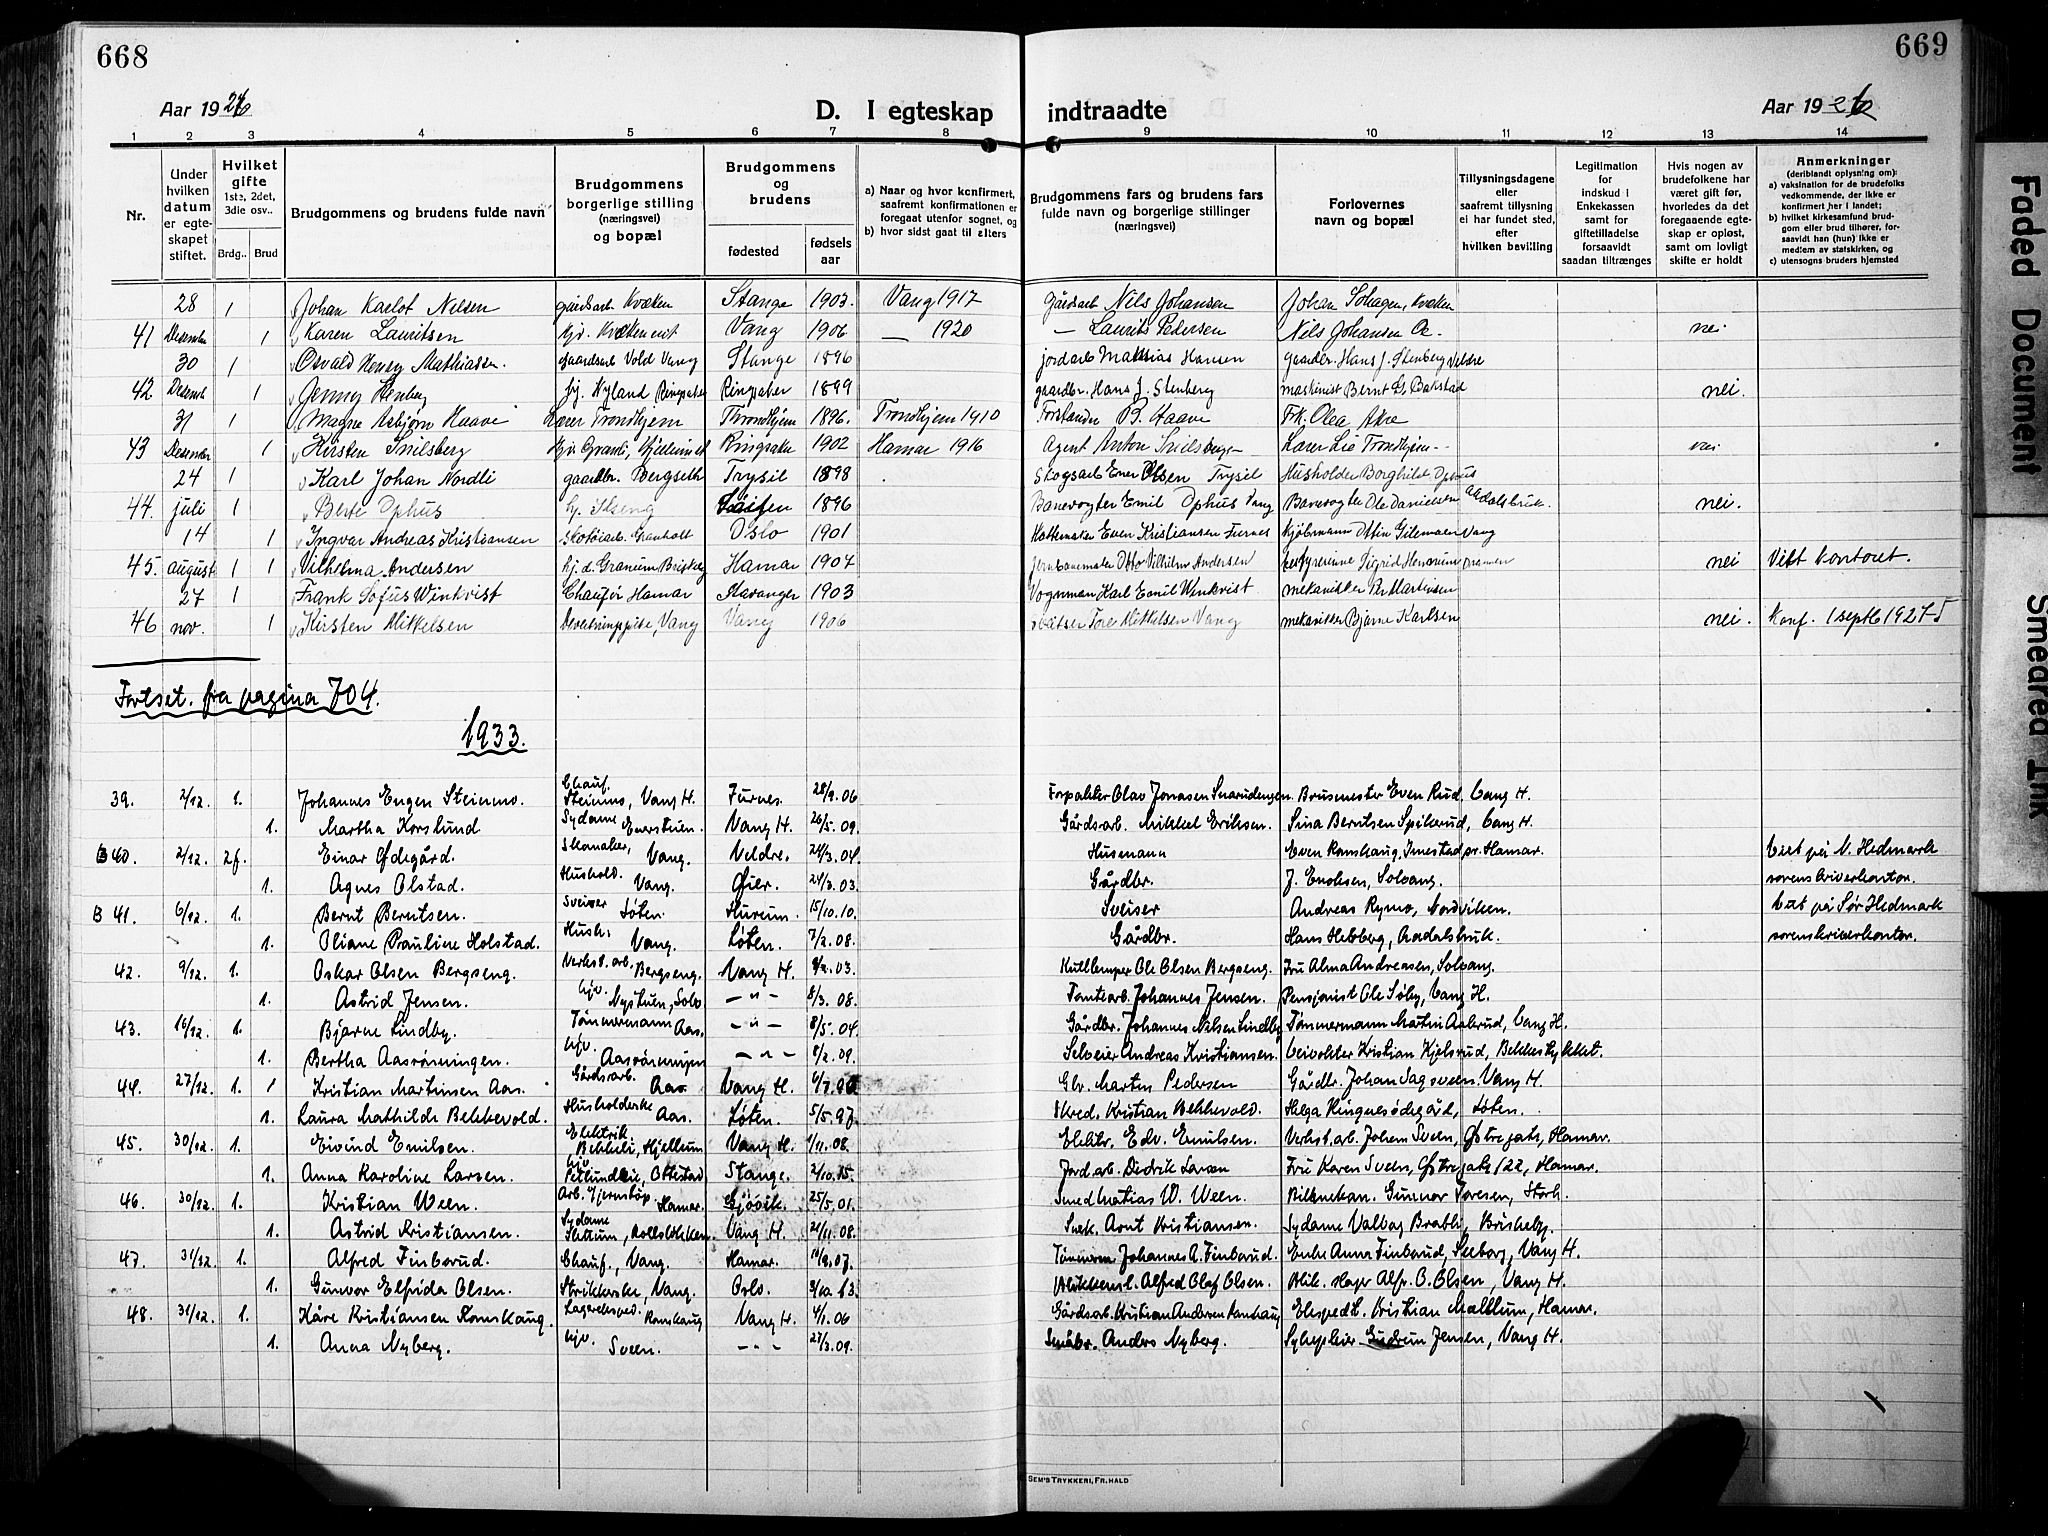 668
669
Aar 1926
D. I egteskap
indtraadte
Aar 1926
1 2 3 4 5 6 7 8 9 10 11 12 13 14
Nr.
Under hvilken datum er egteskapet stiftet.
Hvilket gifte 1ste, 2det, 3die osv..
Brdg.. Brud
Brudgommens og brudens fulde navn
Brudgommens borgerlige stilling (næringsvei) og bopæl
Brudgommens og brudens
fødested
fødselsaar
a) Naar og hvor konfirmert, saafremt konfirmationen er foregaat utenfor sognet, og
b) hvor sidst gaat til alters
Brudgommens fars og brudens fars fulde navn og borgerlige stillinger (næringsvei)
Forlovernes navn og bopæl
Tillysningsdagene eller saafremt tillysning ei har fundet sted, efter hvilken bevilling
Legitimation for indskud i Enkekassen samt for giftetilladelse forsaavidt saadan tiltrænges
Hvis nogen av brudefolkene har været gift før, hvorledes da det foregaaende egteskap er opløst, samt om lovligt skifte er holdt
Anmerkninger (deriblandt oplysning om):
a) vaksination for de brudefolks vedkommende, der ikke er konfirmert her i landet;
b) hvilket kirkesamfund brudgom eller brud tilhører, forsaavidt han (hun) ikke er medlem av statskirken, og
c) utensogns bruders hjemsted
28 1 Johan Karlot Nilsen gårdsarb Kvæken Stange 1903. Vang 1917 Gårdsarb Nils Johansen Johan Sohagen, Kvæken
41 Desember 1 Karen Lauritsen Hjv. Kvæken eiet Vang 1906 — 1920 — Laurits Pedersen Nils Johansen nei
30 1 Osvald Henry Mathiassen. gaardsarb Vold Vang Stange 1896 jordarb Mathias Hansen gaardbr. Hans J. Stenberg Veldre
42 Desemb 1 Jenny Stenberg hj. Nyland Ringsaker Ringsaker 1899 gaardbr. Hans J. Stenberg maskinist Bernt G. Bakstad nei.
31 1 Magne Asbjørn Haave Lærer Trondhjem Throndhjem 1896. Trondhjem 1910 Forstander B. Haave Frk. Olea Akre
43 Desember 1 Kirsten Snilsberg Hjv Grandi, Hjellum st Ringsaker 1902 Hamar 1916 Agent Anton Snilsberg Lærer Lie Trondhjem nei
24 1 Karl Johan Nordli gaardbr. Bergseth Trysil 1898 Skogsarb Ener Olsen Trysil Husholder Borghild Ophus
44. juli 1 Berte Ophus hj. Ilseng Løiten 1896 Banevogter Emil Ophus Vang Banevogter Ole Danielsen Aadalsbruk. nei.
14 1 Ingvar Andreas Kristiansen Skotøiarb. Granholt Oslo 1901 Hattemaker Even Kristiansen Furnes Kjøbmann Ottin Gillemoen Vang
45. august 1 1 Vilhelma Andersen hj. d. Granum Briskeby Hamar 1907 jernbanemaler Otto Vilhelm Andersen Bestyrerinne Sigrid nei Viet kontoret.
27 1 Frank Sofus Winkvist Chaufør Hamar Stavanger 1903 Vognman Karl Emil Winkvist mekaniker Per Martinsen
46 nov. 1 Kirsten Mikkelsen Vang Vang 1906 Tore Mikkelsen Vang mekanikker Bjarne Karlsen nei. Konf. 1 septb 1927
Fortset. fra pagina 704.
1933.
39. 2/12. 1. Johannes Eugen Steinmo. Chauf. Steinmo, Vang H. Furnes. 28/9.06 Forpakter Olav Jonasen Snarudengen. Brusmester Even Rud, Vang H.
1. Martha Korslund Sydame Enerstuen. Vang H. 26/5.09. Gårdsarb. Mikkel Eriksen. Sina Berntsen Spikerud, Vang H.
B 40. 2/12. 2f. Einar Ødegård. Skomaker, Vang. Veldre. 24/3.04. Husmann Even Romskaug, Imestad pr. Hamar. Viet på N. Hedmark
1. Agnes Olstad. Hushold. Vang. Øier. 24/3.03. Gårdbr. J. Enoksen, Solvang. sorenskriverkontor.
B 41. 6/12. 1. Bernt Berntsen. Sveiser Løten Hurum. 15/10.10. Sveiser Andreas Rymo, Nordviken. Viet på Sør Hedmark
1. Oliane Pauline Holstad. Hush: Vang. Løten. 7/2.08. Gårdbr. Hans Hebberg, Aadalsbruk. sorenskriverkontor.
42. 9/12. 1. Oskar Olsen Bergseng. Verkst. arb. Bergseng. Vang H. 8/2.03. Kullkemper Ole Olsen Bergseng. Fru Alma Andreasen, Solvang.
1. Astrid Jensen. hjv. Nystuen, Solv — " — 8/3.08. Tomtearb. Johannes Jensen. Pensjonist Ole Søby, Vang H.
43. 16/12. 1. Bjarne Lindby. Tømmermann Aas. — " — 8/5.04. Gårdbr. Johannes Nilsen Lindby Tømmermann Martin Aaberud, Vang H.
1. Bertha Aasrønningen. hjv. Aasrønningen — " — 8/2.09. Selveier Andreas Kristiansen. Veivokter Kristian Kjelsrud, Bekkestykket.
44. 27/12. 1. 1 Kristian Martinsen Aas. Gårdsarb. Aas Vang H. Gbr. Martin Pedersen Gårdbr. Johan Sagsveen. Vang H.
1. Laura Mathilde Bekkevold. Husholderske Aas. Løten. 5/5.97. Skred. Kristian Bekkevold. Helga Ringnesødegård, Løten.
45. 30/12. 1. Eivind Emilsen. Elektrik Bekkeli, Hjellum Vang H. 1/11.08. Elektr. Edv. Emilsen. Verkst. arb. Johan Sveen, Østregate, Hamar.
1. Anna Karoline Larsen. hjv Petlundlie, Ottestad Stange. 2/10.15. Jord.arb. Didrik Larsen Fru Karen Sveen, Østregate 122, Hamar.
46. 30/12. 1. Kristian Ween. Arb. Hjernstøp. Hamar. Gjøvik. 25/5.01. Smed Matias W. Ween. Bilmekan. Gunnar Toresen, Storh.
1. Astrid Kristiansen. Sydame Slettum, Rollsløkken. Vang H. 21/11.08. Snek. Arnt Kristiansen. Sydame Valbog Bratli, Briskeby.
47. 31/12. 1. Alfred Finborud. Chauf., Vang. Hamar. 10/9.07. Tømmerm Johannes A. Finborud. Enke Anna Finborud, Seeborg, Vang H.
1. Gunvor Elfrida Olsen. Strikkerske, Vang. Oslo. 3/10.13. Blikkensl. Alfred Olaf Olsen. Blik. slager Alfr. O. Olsen, Vang H.
48. 31/12. 1. Kåre Kristiansen Romskaug. Lagereksped. Romskaug Vang H. 4/1.06 Gårdsarb. Kristian Andersen Romskaug Eksped t. Kristian Mælum, Hamar.
1. Anna Nyberg. hjv. Sveen. — " — 27/3.09. Småbr. Anders Nyberg. Sykepleier Gudrun Jensen, Vang H.
SEM'S TRYKKERI, FR. HALD
Faded Document
Smeared Ink